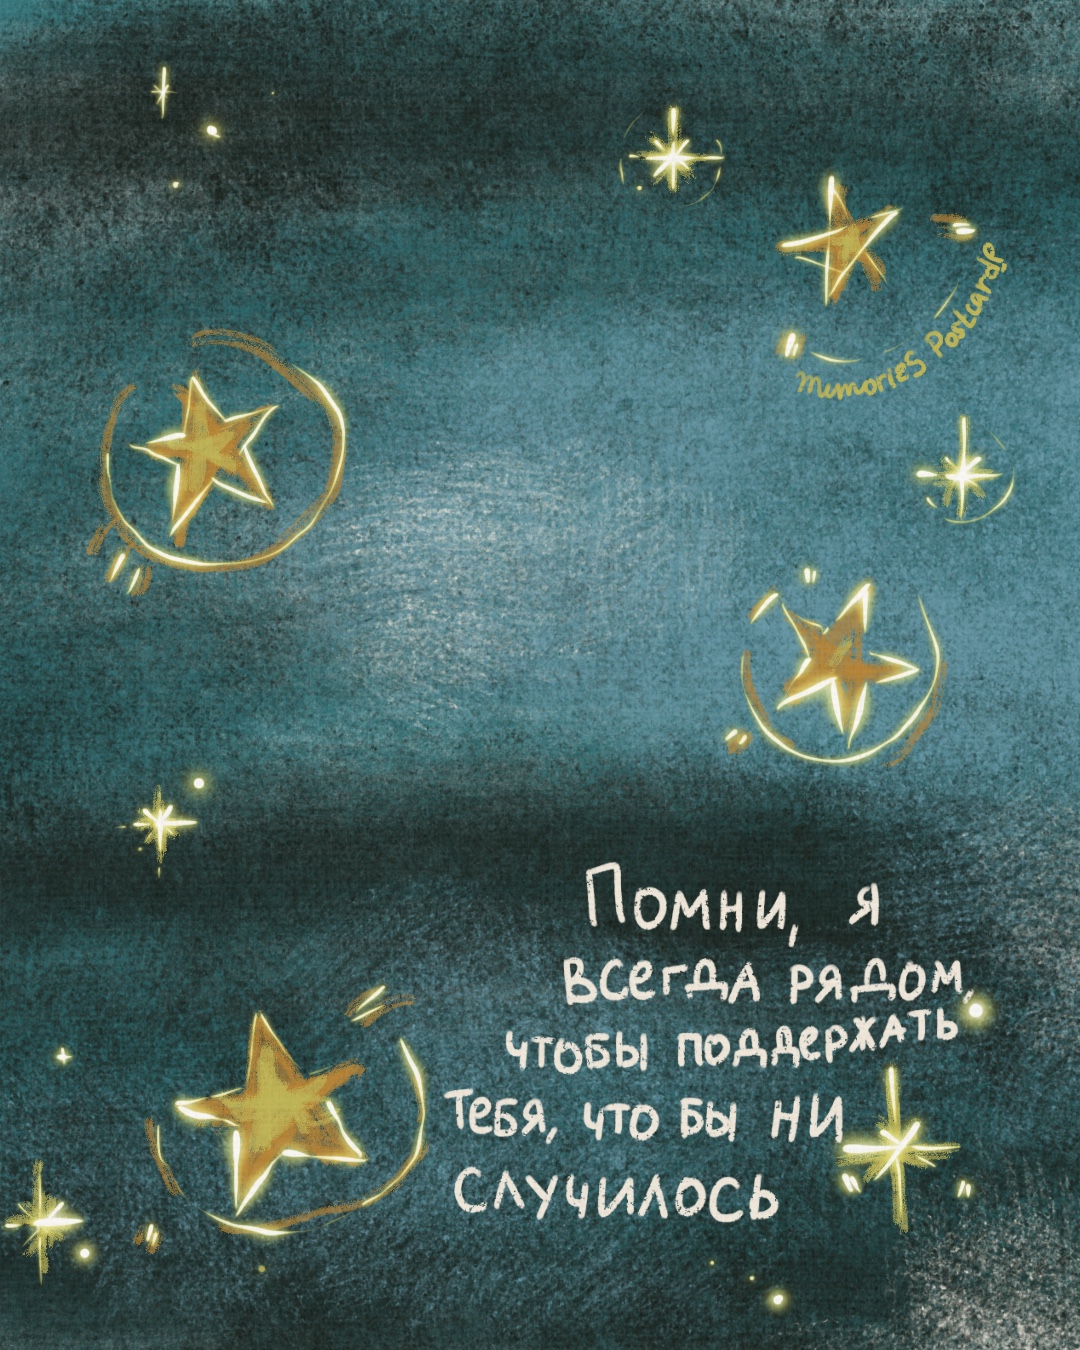 Memories Postcards
Помни, я
всегда рядом,
чтобы поддержать
тебя, что бы ни
случилось